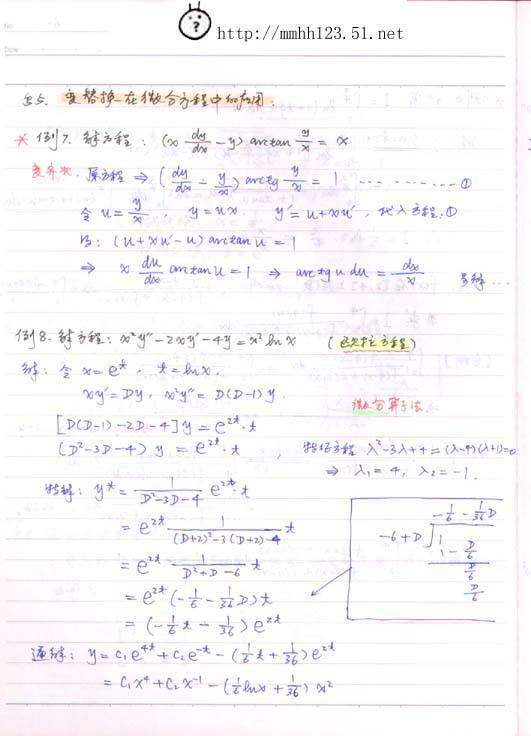 http://mmhh123.51.net
No
Date
变替换在微分方程中的应用:
* 例7. 解方程: (x dy/dx - y) arctan y/x = x
变齐次. 原方程 ⇒ (dy/dx - y/x) arctg y/x = 1 ---------- ①
令 u = y/x, y = ux. y' = u+xu', 代入方程①
得: (u+xu'-u) arctan u = 1
⇒ x du/dx arctan u = 1 ⇒ arctg u du = dx/x 易解…
例8. 解方程: x²y''-2xy'-4y = x² ln x (欧拉方程)
解: 令 x = e^t, t = ln x.
xy' = Dy, x²y'' = D(D-1)y.
微分算子法.
[D(D-1)-2D-4] y = e^{2t}·t
(D²-3D-4) y = e^{2t}·t, 特征方程 λ²-3λ+4=(λ-4)(λ+1)=0
⇒ λ₁ = 4, λ₂ = -1.
特解: y* = 1/(D²-3D-4) e^{2t}·t
= e^{2t} 1/((D+2)²-3(D+2)-4) t
= e^{2t} 1/(D²+D-6) t
= e^{2t} (-1/6 - 1/36 D) t
= (-1/6 t - 1/36) e^{2t}
-1/6 - 1/36 D
-6+D √1
1 - D/6
D/6
D/6
通解: y = C₁e^{4t} + C₂e^{-t} - (1/6 t + 1/36) e^{2t}
= C₁x⁴ + C₂x⁻¹ - (1/6 ln x + 1/36) x²